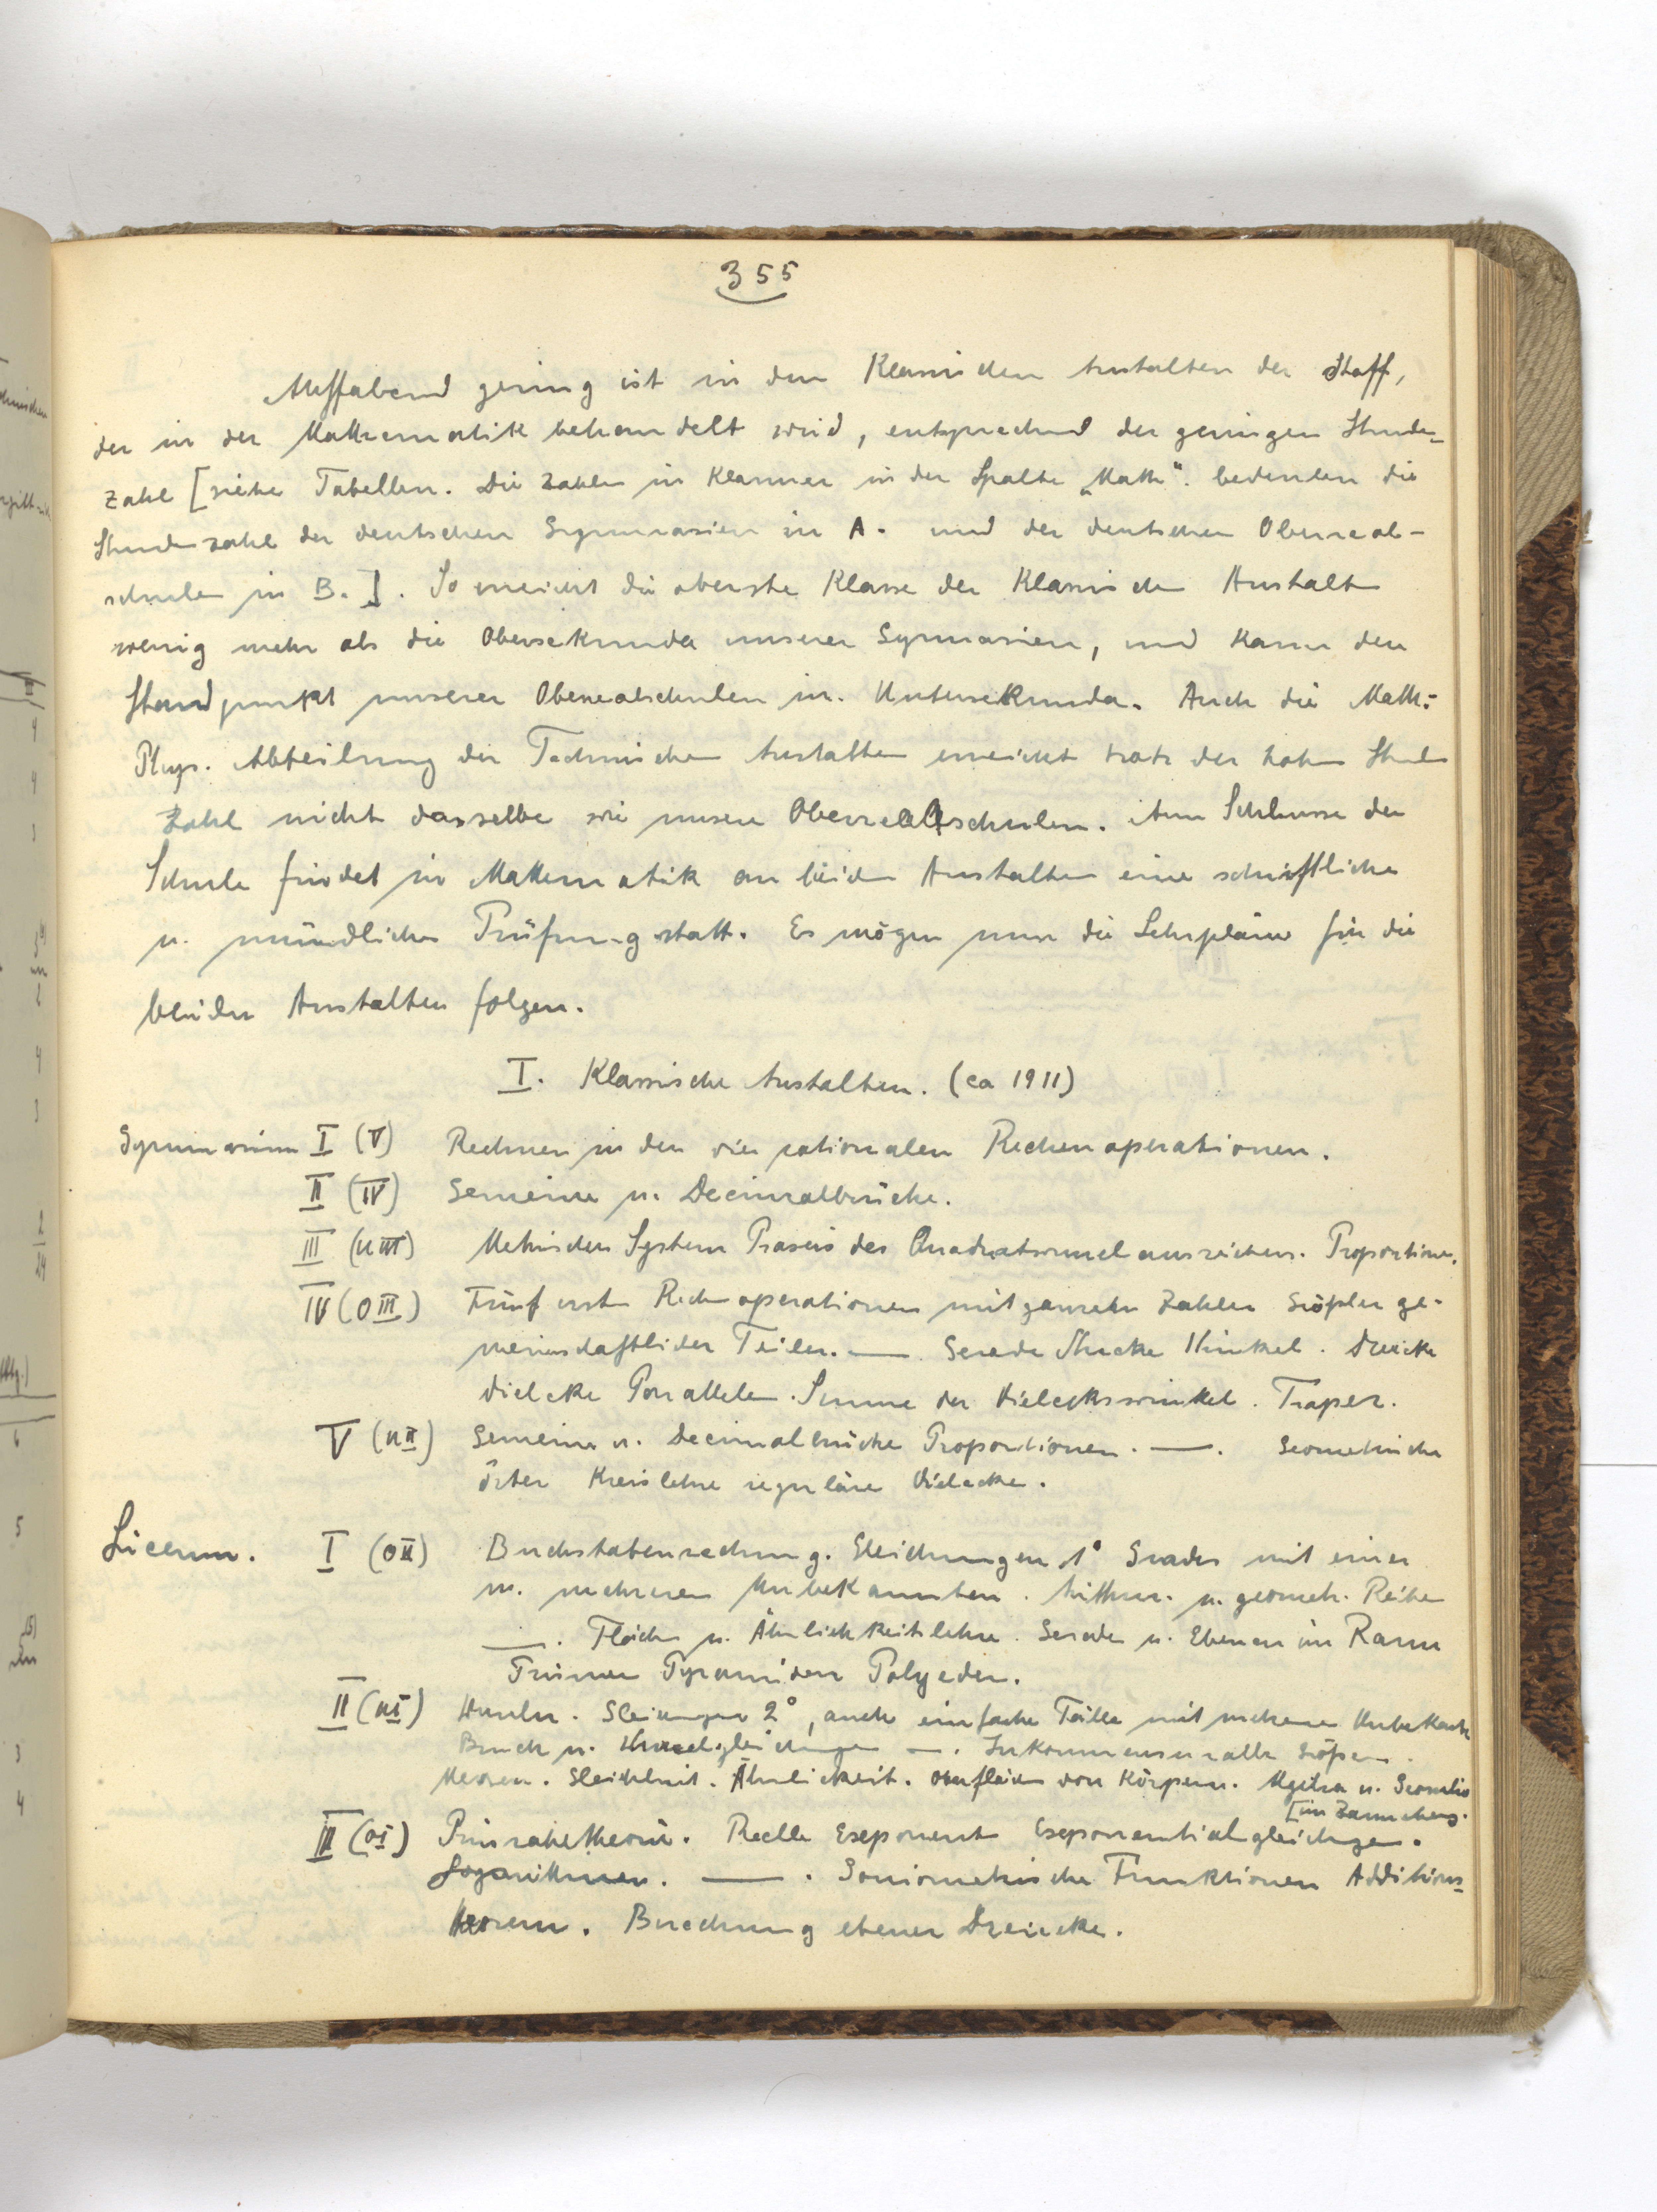 355
Auffallend gering ist in den Klassischen Anstalten der Stoff,
der in der Mathematik behandelt wird, entsprechend der geringen Stunden-
zahl [siehe Tabellen. Die Zahlen in Klammer in der Spalte „Math“. bedeuten die
Stundenzahl der deutschen Gymnasien in A. und der deutschen Oberreal-
schulen in B.]. So erreicht die oberste Klasse der Klassischen Anstalten
wenig mehr als die Obersekunda unserer Gymnasien, und kaum den
Standpunkt unserer Oberrealschulen in Untersekunda. Auch die Math.-
Phys. Abteilung der Technischen Anstalten erreicht trotz der hohen Stunden
Zahl nicht dasselbe wie unsere Oberrealschulen. Am Schlusse der
Schule findet in Mathematik an beiden Anstalten eine schriftliche
u. mündliche Prüfung statt. Es mögen nun die Lehrpläne für die
beiden Anstalten folgen.
I. Klassische Anstalten. (ca 1911)
Gymnasium I (V) Rechnen in den vier rationalen Rechenoperationen.
II (IV) Gemeine u. Decimalbrüche.
III (UIII) Metrisches System Praxis des Quadratwurzelausziehens. Proportionen.
IV (OIII) Fünf erste Rechenoperationen mit ganzen Zahlen Größter ge-
meinschaftlicher Teiler. — . Gerade Strecke Winkel. Dreiecke
Vielecke Parallelen. Summe der Vieleckswinkel. Trapez.
V (UII) Gemeine u. Decimalbrüche Proportionen. — . Geometrische
Örter Kreislehre reguläre Vielecke.
Liceum. I (OII) Buchstabenrechnung. Gleichungen 1° Grades mit einer
u. mehreren Unbekannten. Arithm. u. geometr. Reihen
— . Flächen u. Ähnlichkeitslehre. Gerade u. Ebenen im Raum
Prismen Pyramiden Polyeder.
II (UI) Wurzeln. Gleichungen 2°, auch einfache Fälle mit mehreren Unbekannten
Bruch u. Wurzelgleichungen — . Inkommensurable Größen.
Messen. Gleichheit. Ähnlichkeit. Oberflächen von Körpern. Algebra u. Geometrie
[im Zusammenhang.
III (OI) Primzahltheorie. Reelle Exponenten Exponentialgleichungen.
Logarithmen. — . Goniometrische Funktionen Additions-
theorem. Berechnung ebener Dreiecke.